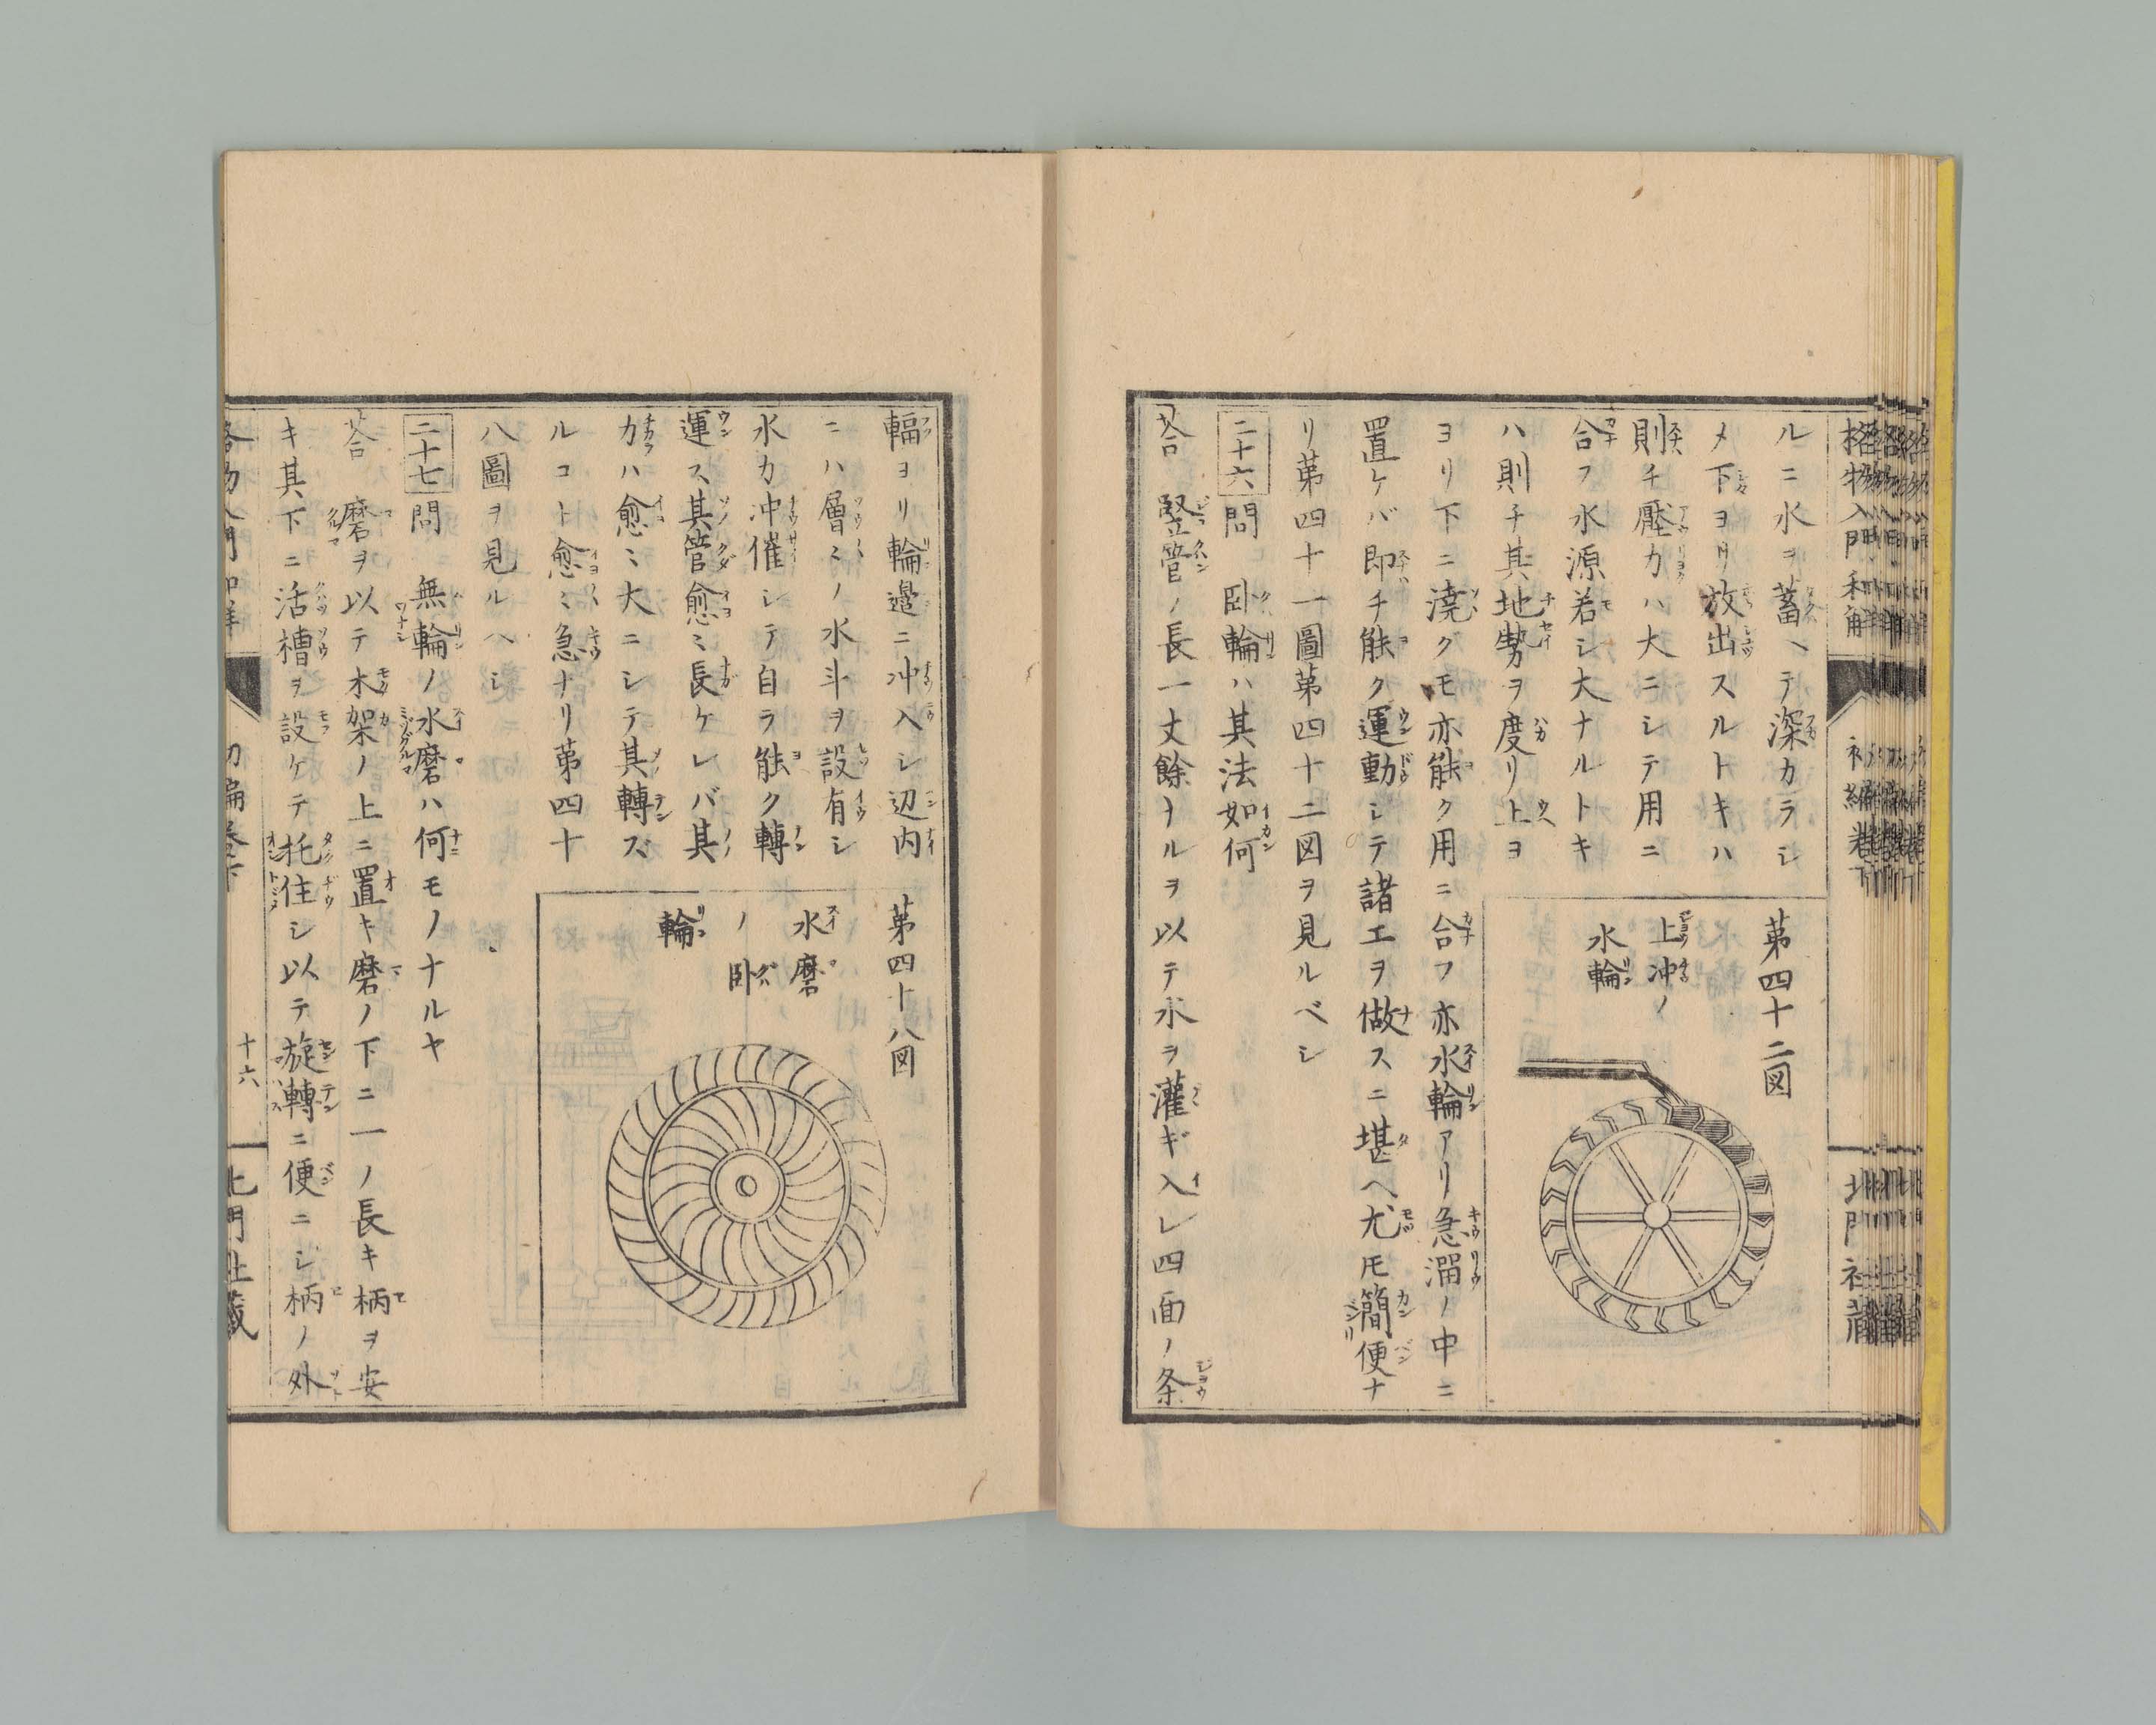 格物入門和解
初編巻下
北門社蔵
ルニ水ヲ蓄ヘテ深カラシ
メ下ヨリ放出スルトキハ
則チ壓力ハ大ニシテ用ニ
合フ水源若シ大ナルトキ
ハ則チ其地勢ヲ度リ上ヨ
ヨリ下ニ澆グモ亦能ク用ニ合フ亦水輪アリ急溜ノ中ニ
置ケバ即チ能ク運動シテ諸工ヲ做スニ堪ヘ尤モ簡便ナ
リ第四十一圖第四十二図ヲ見ルベシ
二十六問 臥輪ハ其法如何
答 竪管ノ長一丈餘ナルヲ以テ水ヲ灌ギ入レ四面ノ条
第四十二図
上冲ノ
水輪
輻ヨリ輪邉ニ冲入シ辺内
ニハ層ミノ水斗ヲ設有シ
水力冲催シテ自ラ能ク轉
運ス其管愈ミ長ケレバ其
力ハ愈ミ大ニシテ其轉ズ
ルコト愈ミ急ナリ第四十
八圖ヲ見ルヘシ
第四十八図
水磨
ノ臥
輪
二十七問 無輪ノ水磨ハ何モノナルヤ
答 磨ヲ以テ木架ノ上ニ置キ磨ノ下ニ一ノ長キ柄ヲ安
キ其下ニ活槽ヲ設ケテ托住シ以テ旋轉ニ便ニシ柄ノ外
格物入門和解
初編巻下
十六
北門社蔵